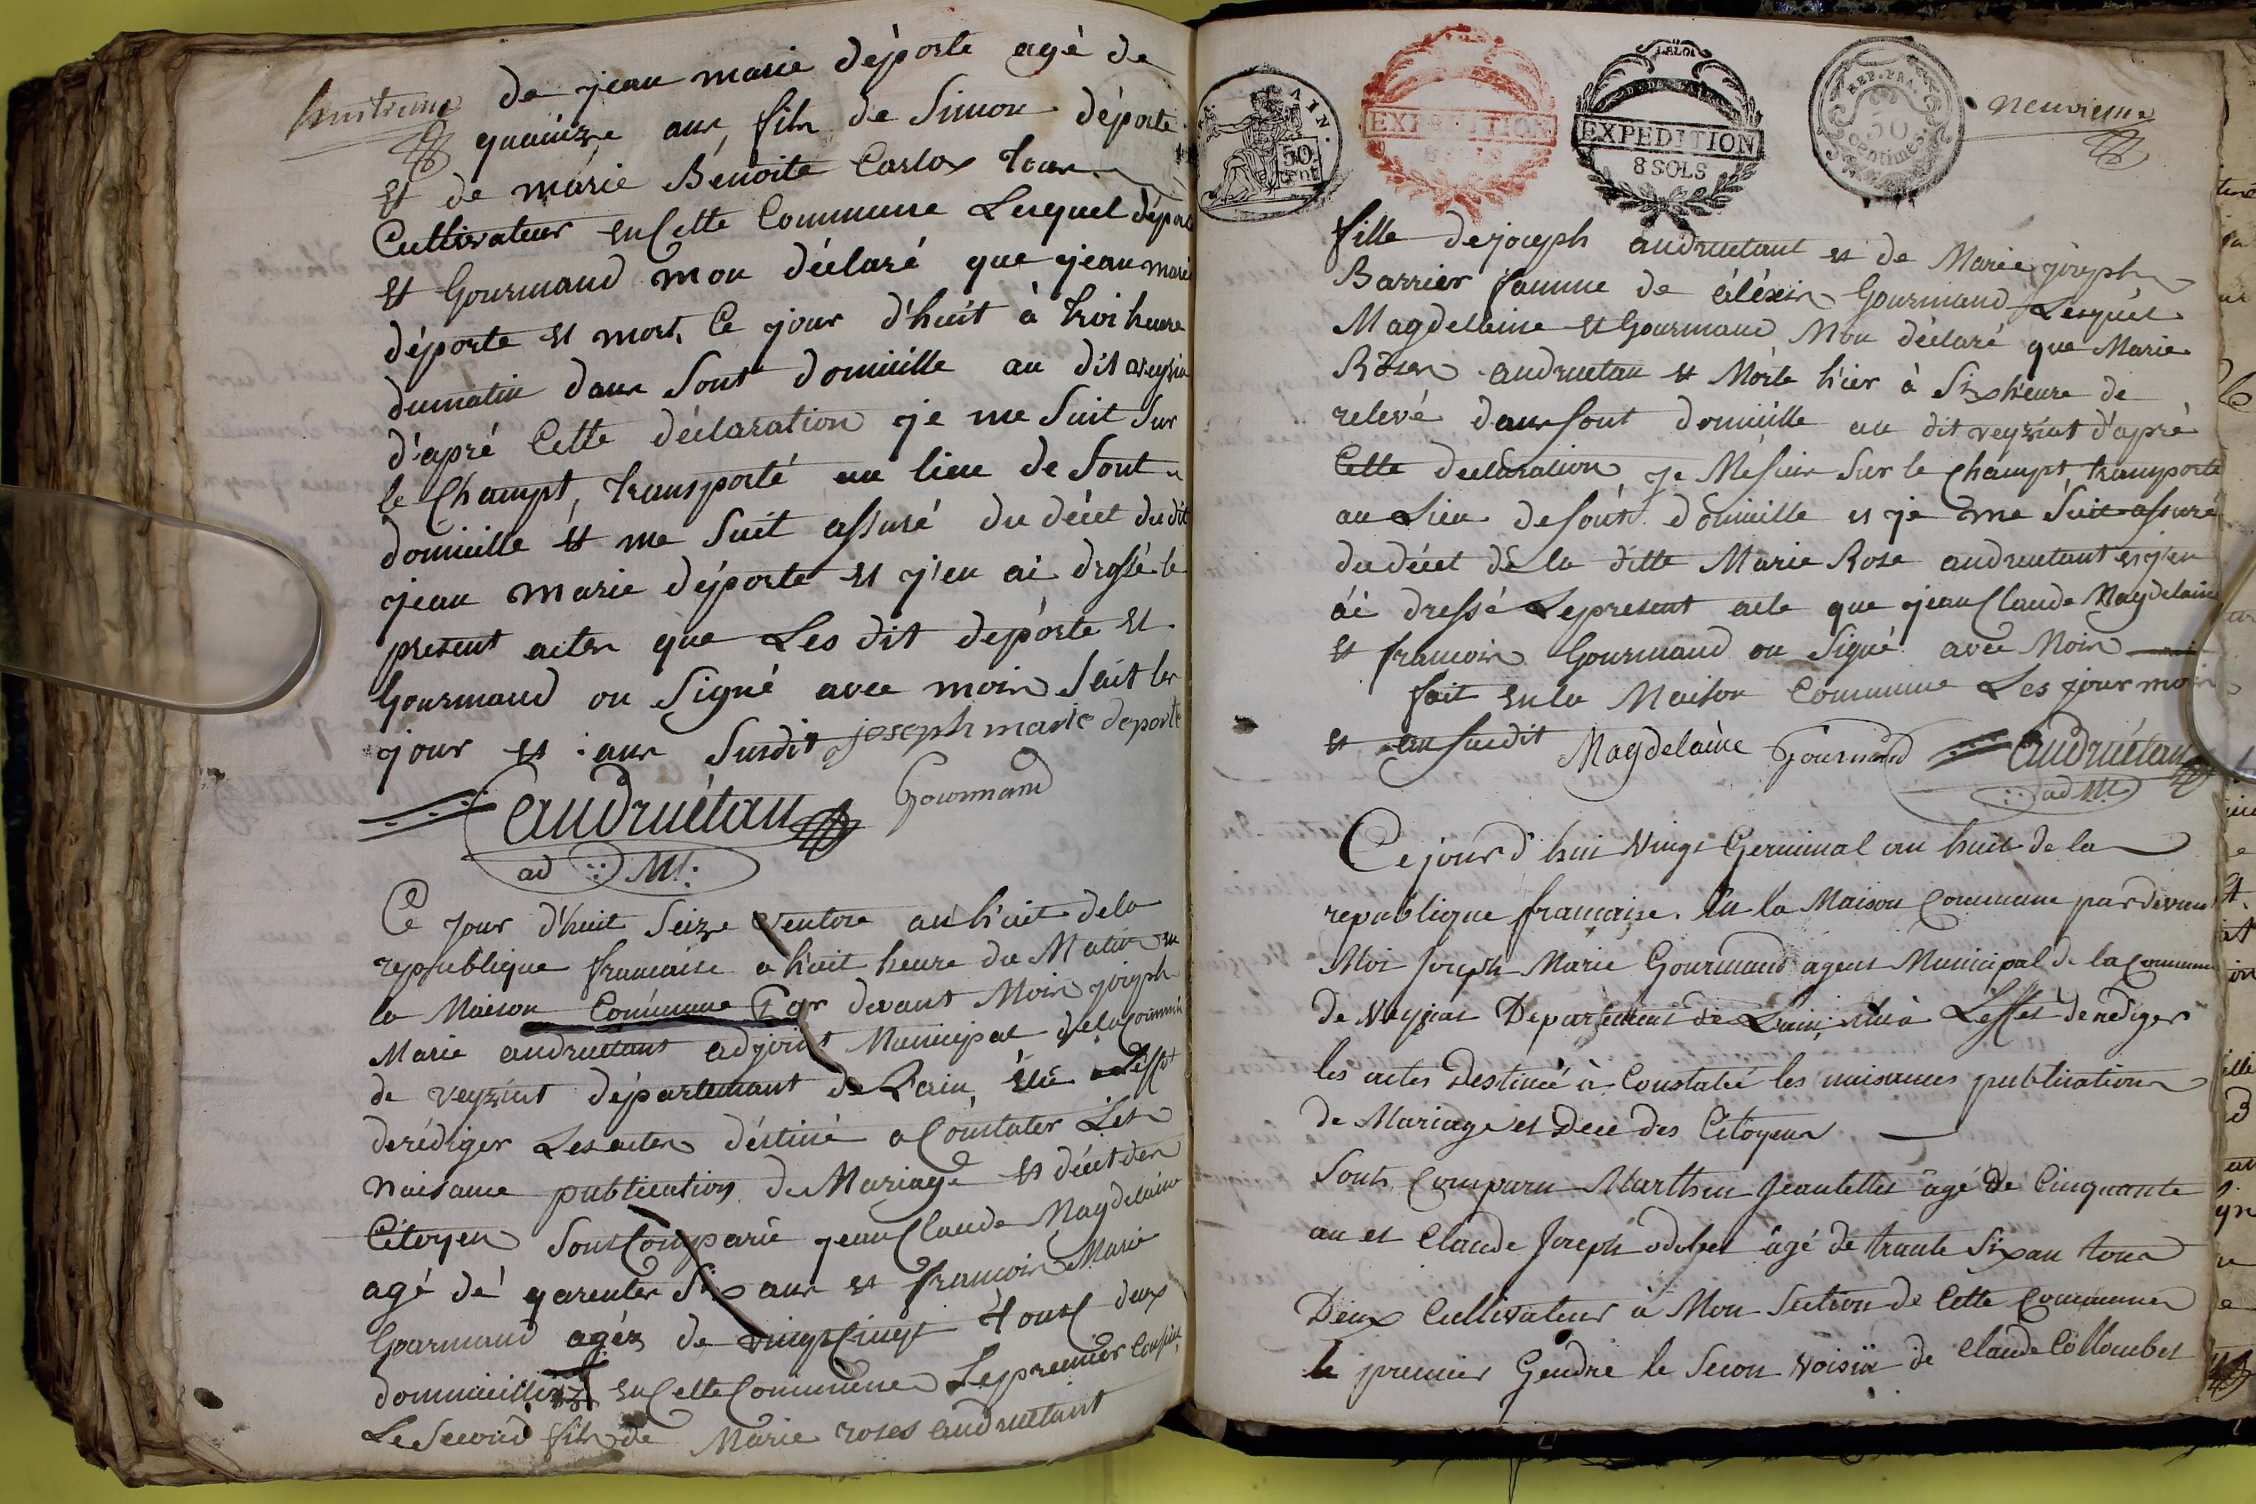 huitieme
de jean marie déporte agé de
quainze ans, fils de Simon déporte
et de marie Benoite Carlos tous
Cultivateur en Cette Commune Lesquel déporte
et Gourmand mon déclaré que jean marie
déporte et mort, Ce jour d'huit à troi heure
dumatin dans Sont domiciile au dit veyzia
d'apré Cette déclaration je me Suit Sur
le Champt, transporté au lieu de Sont
domicille et me Suit assuré du décet du dit
jean marie déporte et j'en ai drossé le
present actes que Les dit deporte et
Gourmand on Signé avec mois fait les
jour et ans Susdit joseph marie deporte
Gourmand
andruétan
ad M:
Ce jour d'huit Seize ventose an h'uit dela
republique francaise a h'uit heure du Matin en
la Maison Commune Par devant Mois joseph
Marie andruetant adjoint Municipal de la Commune
de veyziat départemant de L'ain, élu a L'effet
derédiger Les actes déstiné a Constater Les
Naisance publication de Mariage et décet des
Citoyen Sont Comparu jean Claude Magdelaine
agé dé garentes Six ans et francois Marie
Gourmand agéz de vingt Cinqt tous deux
dommicillez en Cette Commune Les premier Cousin,
Le Second fils de Marie roses andruetant
EXPEDITION
8 SOLS
LA LOI
EXPEDITION
8 SOLS
AIN.
50.
cent.
REP. FRA.
50
centimes
neuvieme
fille de joseph andruetant et de Marie joseph
Barrier famme de éléxis Gourmand Lesquel
Magdelaine et Gourmand Mon déclaré que Marie
Roses andruetan et Morte h'ier à Six h'eure de
relevé dans Sont domicille au dit veyziat d'apré
Cette declaration je Me Suis Sur le Champt, transporté
au Lieu de Sont domicille et je me Suit assuré
du décet de la ditte Marie Rose andruetant et j'en
ai dressé Le present acte que jean Claude Magdelaine
et francois Gourmand on Signé avec Mois
fait en la Maison Commune Les jour mois
et an Susdit Magdelaine Gourmand andruétan
ad M:
Ce jour d'hui Vingt Germinal an huit de la
republique francaise. En la Maison Commune par devant
Moi Joseph Marie Gourmand agent Municipal de la Commune
de Veyziat Departement de Lain, élu à Leffet de rediger
les actes Destinée à Constaté les naisances publications
de Mariage et Decé des Citoyens
Sonts Comparu Marthin Jeantellet âgé de Cinquante
an et Claude Joseph odobet âgé de trante Six an tous
Deux Cultivateur à Mon Section de Cette Commune
le premier Gendre le Secon Voisin de Claude Collombet